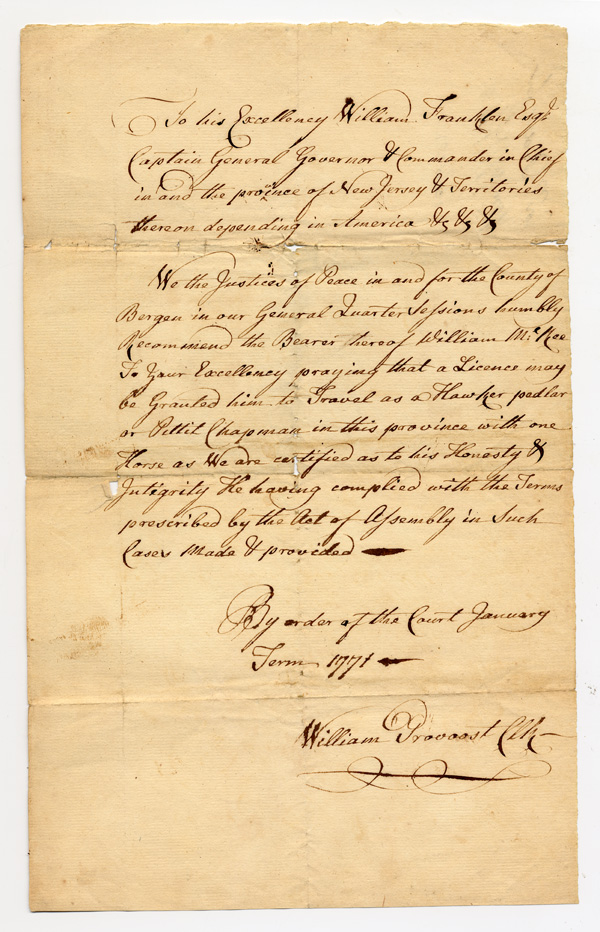 To his Excellency William Franklen Esqr
Captain General Governor & Commander in Chief
in and the province of New Jersey & Territories
thereon depending in America &c &c &c
We the Justices of Peace in and for the County of
Bergen in our General Quarter Sessions humbly
Recommend the Bearer hereof William Mc Kee
To your Excellency praying that a Licence may
be Granted him to Travel as a Hawker pedlar
or Pittit Chapman in this province with one
Horse as We are certified as to his Honesty &
Intigrity He having complied with the Terms
prescribed by the Act of Assembly in Such
Cases Made & provided
By order of the Court January
Term 1771
William Provoost Clk